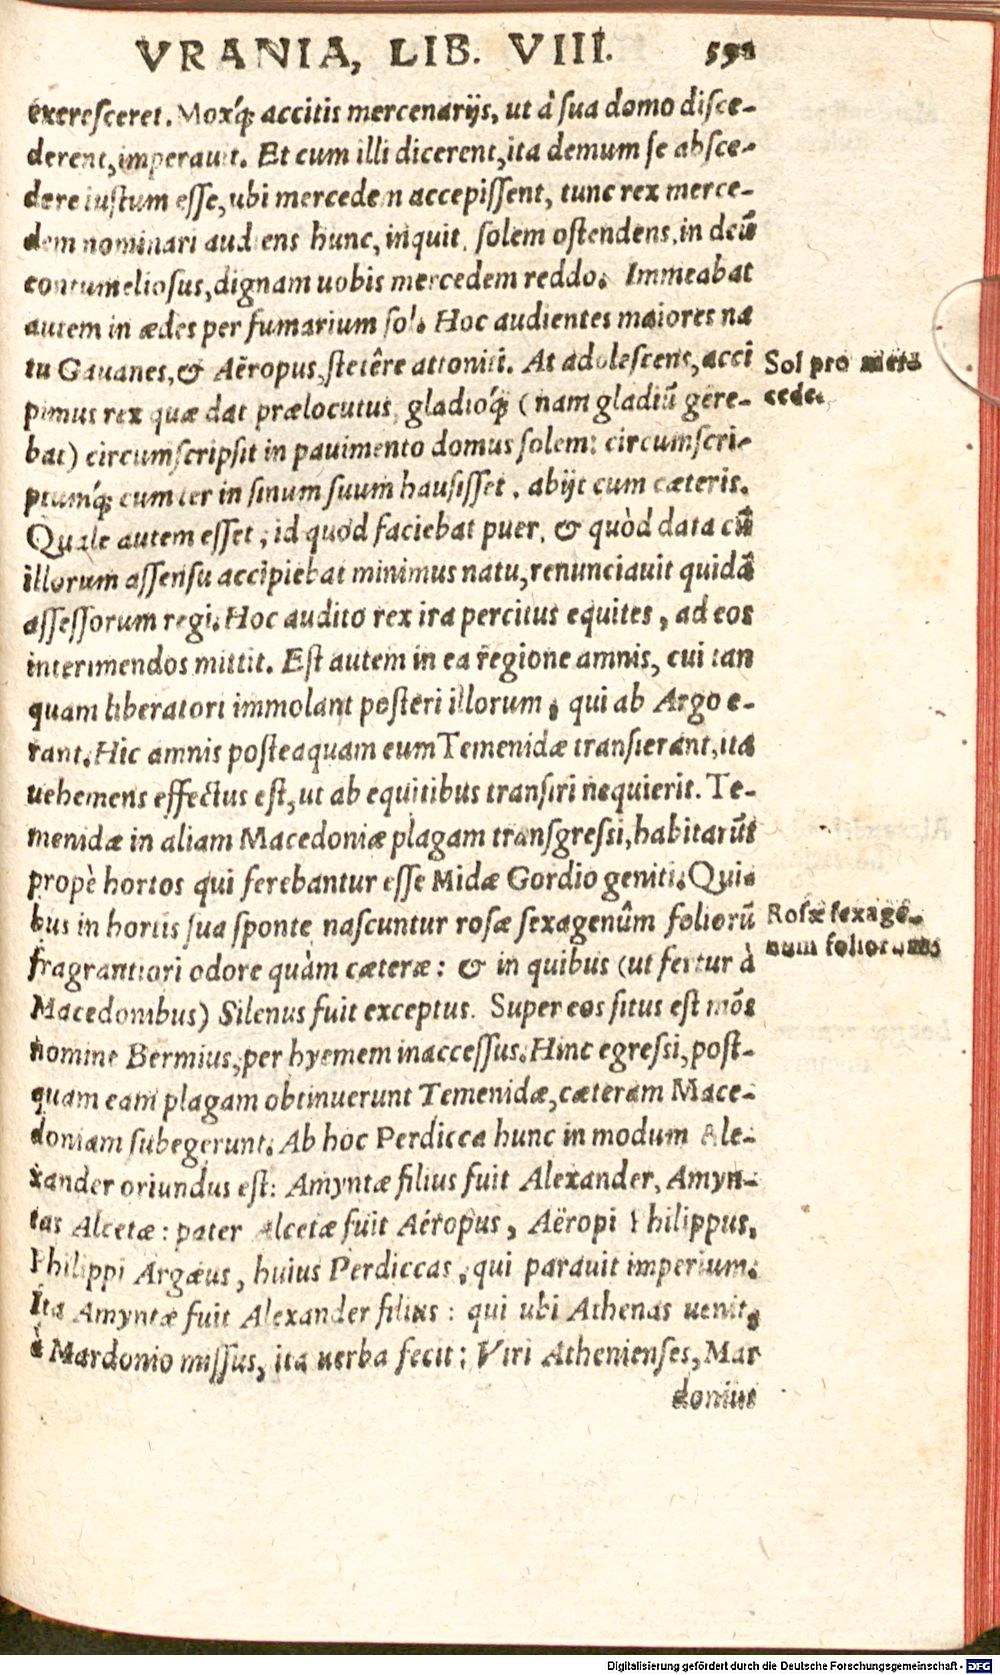 VRANIA, LIB. VIII.
excresceret. Moxq́; accitis mercenarijs, ut à sua domo disce-
derent, imperauit. Et cum illi dicerent, ita demum se absce-
dere iustum esse, ubi mercedem accepissent, tunc rex merce-
dem nominari audiens hunc, inquit, solem ostendens, in deũ
contumeliosus, dignam uobis mercedem reddo. Immeabat
autem in ædes per fumarium sol. Hoc audientes maiores na
tu Gauanes, & Aëropus, stetêre attoniti. At adolescens, acci
pimus rex quæ dat prælocutus, gladioq́; (nam gladiũ gere-
bat) circumscripsit in pauimento domus solem: circumscri-
ptumq́; cum ter in sinum suum hausisset, abijt cum cæteris.
Quale autem esset, id quod faciebat puer, & quòd data cũ
illorum assensu accipiebat minimus natu, renunciauit quidã
assessorum regi. Hoc audito rex ira percitus equites, ad eos
interimendos mittit. Est autem in ea regione amnis, cui tan
quam liberatori immolant posteri illorum, qui ab Argo e-
rant. Hic amnis posteaquam eum Temenidæ transierant, ita
uehemens effectus est, ut ab equitibus transiri nequierit. Te-
menidæ in aliam Macedoniæ plagam transgressi, habitarũt
propè hortos qui ferebantur esse Midæ Gordio geniti. Qui-
bus in hortis sua sponte nascuntur rosæ sexagenûm foliorũ
fragrantiori odore quàm cæteræ: & in quibus (ut fertur à
Macedonibus) Silenus fuit exceptus. Super eos situs est mõs
nomine Bermius, per hyemem inaccessus. Hinc egressi, post-
quam eam plagam obtinuerunt Temenidæ, cæteram Mace-
doniam subegerunt. Ab hoc Perdicca hunc in modum Ale-
xander oriundus est: Amyntæ filius fuit Alexander, Amyn-
tas Alcetæ: pater Alcetæ fuit Aëropus, Aëropi Philippus,
Philippi Argæus, huius Perdiccas, qui parauit imperium.
Ita Amyntæ fuit Alexander filius: qui ubi Athenas uenit,
à Mardonio missus, ita uerba fecit: Viri Athenienses, Mar
donius
Sol pro mer-
cede.
Rosæ sexage-
num foliorum
Digitalisierung gefördert durch die Deutsche Forschungsgemeinschaft - DFG